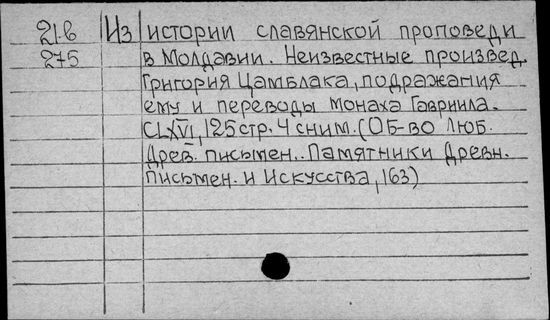 21.б Из истории славянской проповеди
275 в Молдавии. Неизвестные произвед.
Григория Цамблака, подражания
ему и переводы монаха Гавриила.
CLXVI, 125 стр. 4 сним. (Об-во Люб.
Древ. письмен.. Памятники Древн.
письмен. и Искусства, 163)